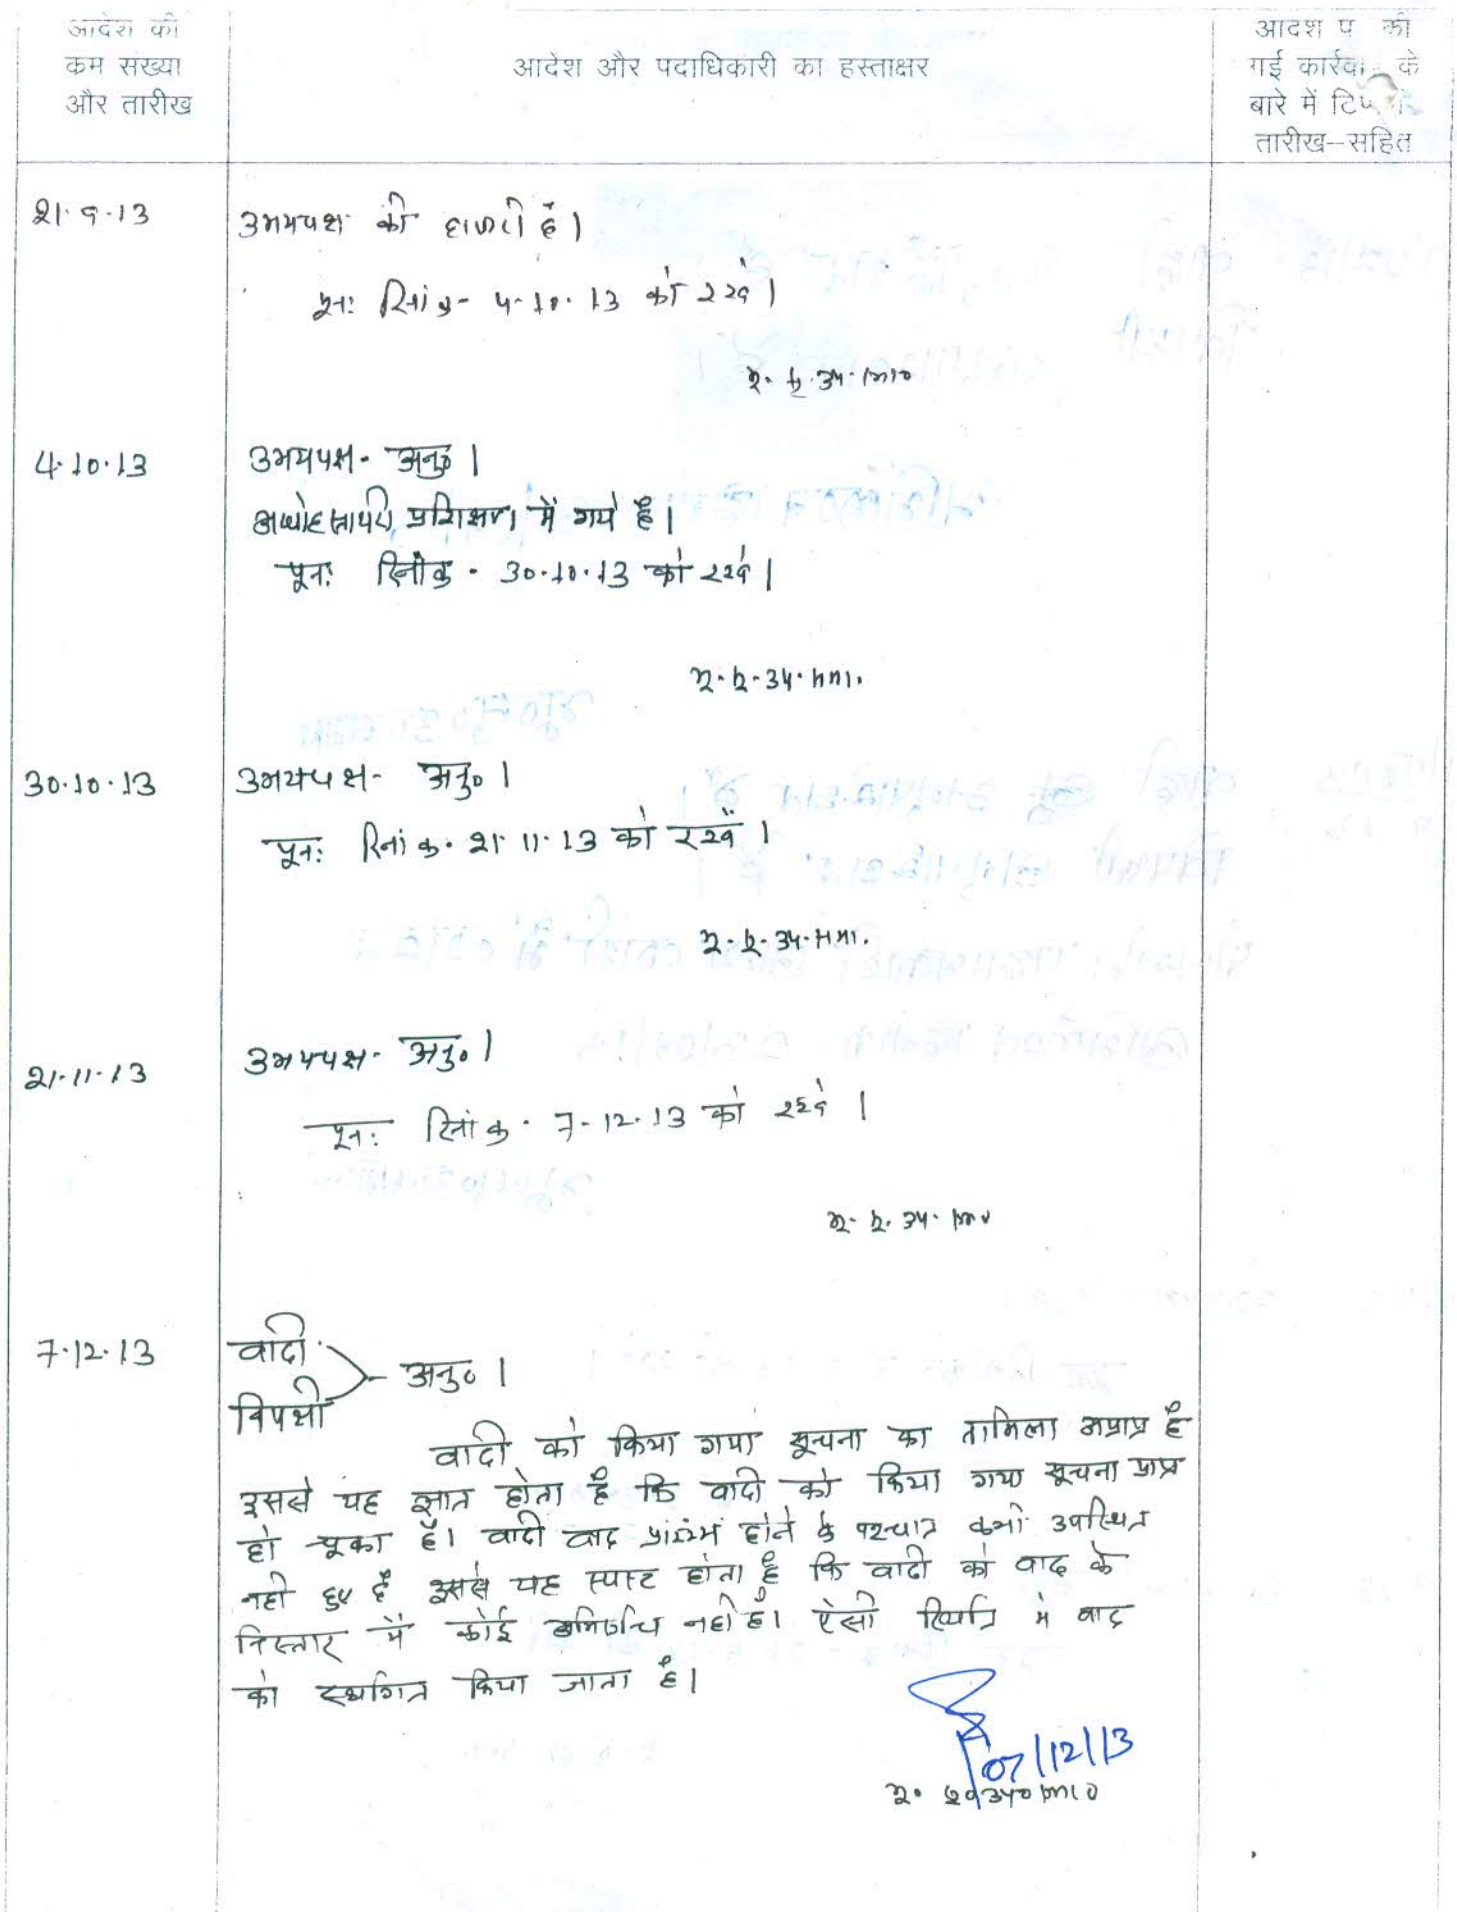 आदेश की
कम संख्या
और तारीख
आदेश और पदाधिकारी का हस्ताक्षर
आदश प की
गई कार्रवा के
बारे में टिप
तारीख–सहित
21·9·13
उभयपक्ष की हाजरी है।
पून: दिनांक- 4·10·13 को रखें।
4·10·13
उभयपक्ष- अनु० |
अधोहस्ताक्षरी प्रशिक्षण में गये है।
पून: दिनांक - 30·10·13 को रखें |
30·10·13
उभयपक्ष- अनु० |
पून: दिनांक- 21·11·13 को रखें |
21·11·13
उभयपक्ष- अनु० |
पून: दिनांक- 7-12·13 को रखें |
7·12·13
वादी
अनु० |
विपक्षी
वादी को किया गया सूचना का तामिला अप्राप्त है
इससे यह ज्ञात होता है कि वादी को किया गया सूचना प्राप्त
हो चूका है। वादी वाद प्रारंभ होने के पश्चात कभी उपस्थित
नही हुए है इससे यह स्पस्ट होता है कि वादी को वाद के
निस्तार में कोई अभिरूचि नही है। ऐसी स्थिति मे वाद
को स्थगित किया जाता है।
07/12/13